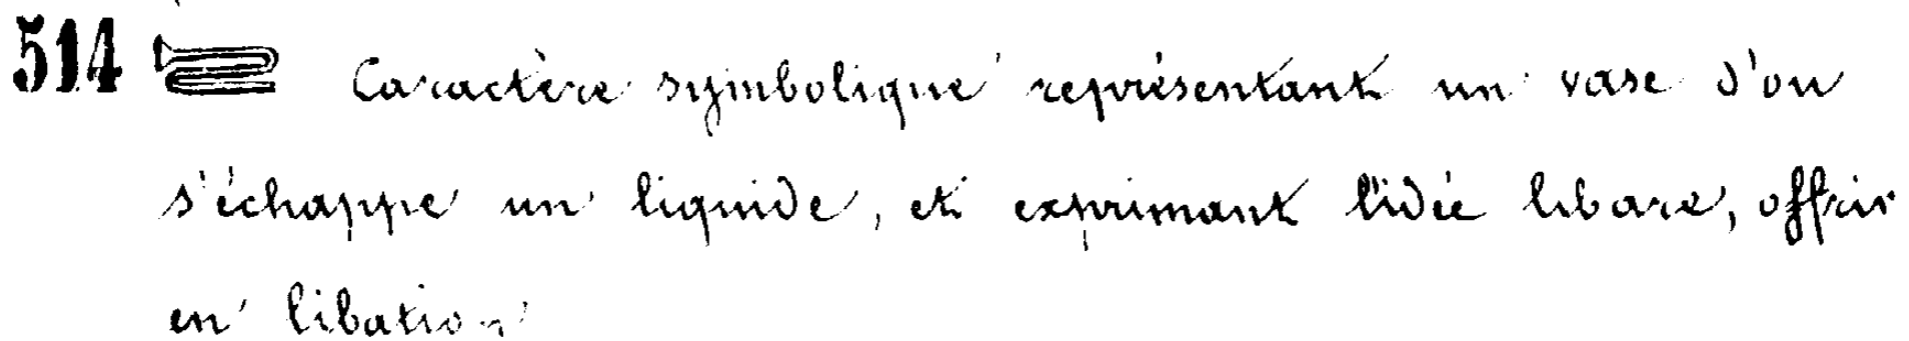 514 Caractère symbolique représentant un vase d'ou
s'échappe un liquide, et exprimant l'idée libare, offrir
en libation